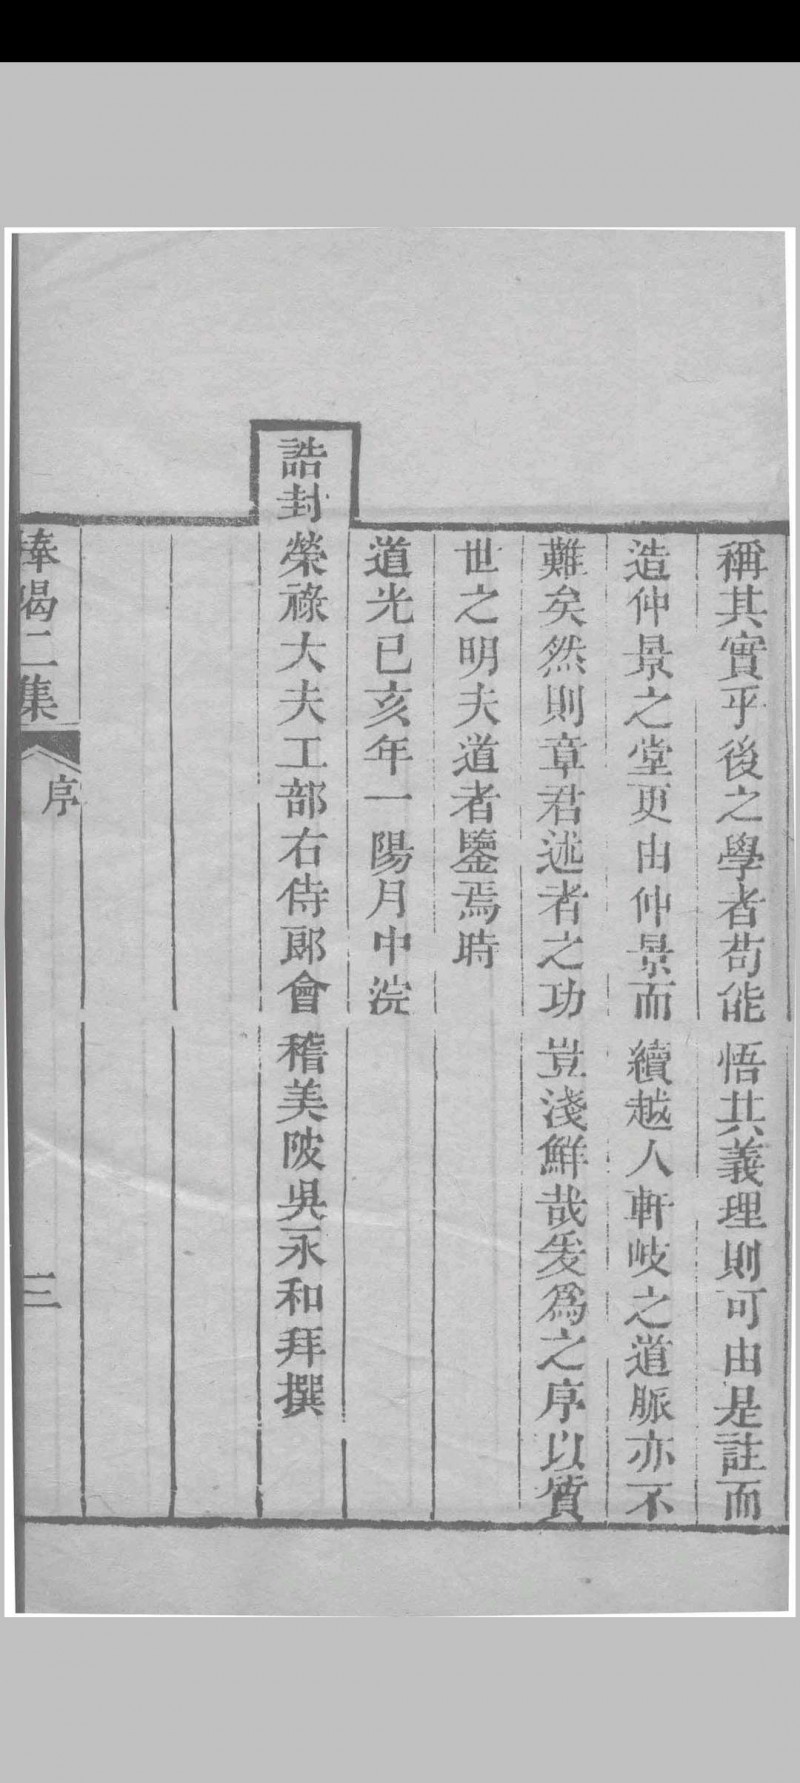 稱其實乎後之學者苟能悟其義理則可由是註而
造仲景之堂更由仲景而續越人軒岐之道脈亦不
難矣然則章君述者之功豈淺鮮哉爰爲之序以質
世之明夫道者鑒焉時
道光已亥年一陽月中浣
誥封榮祿大夫工部右侍郎會稽美陂吳永和拜撰
棒喝二集
序
三